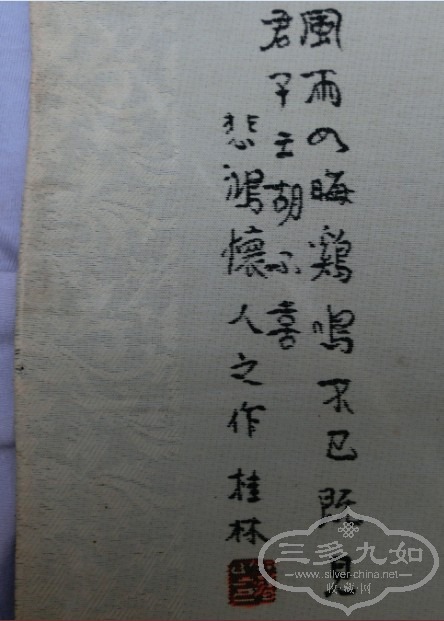 風雨如晦鷄鳴不已既見
君子云胡不喜
悲鴻懷人之作 桂林
三多九如
www.silver-china.net
收·藏·网